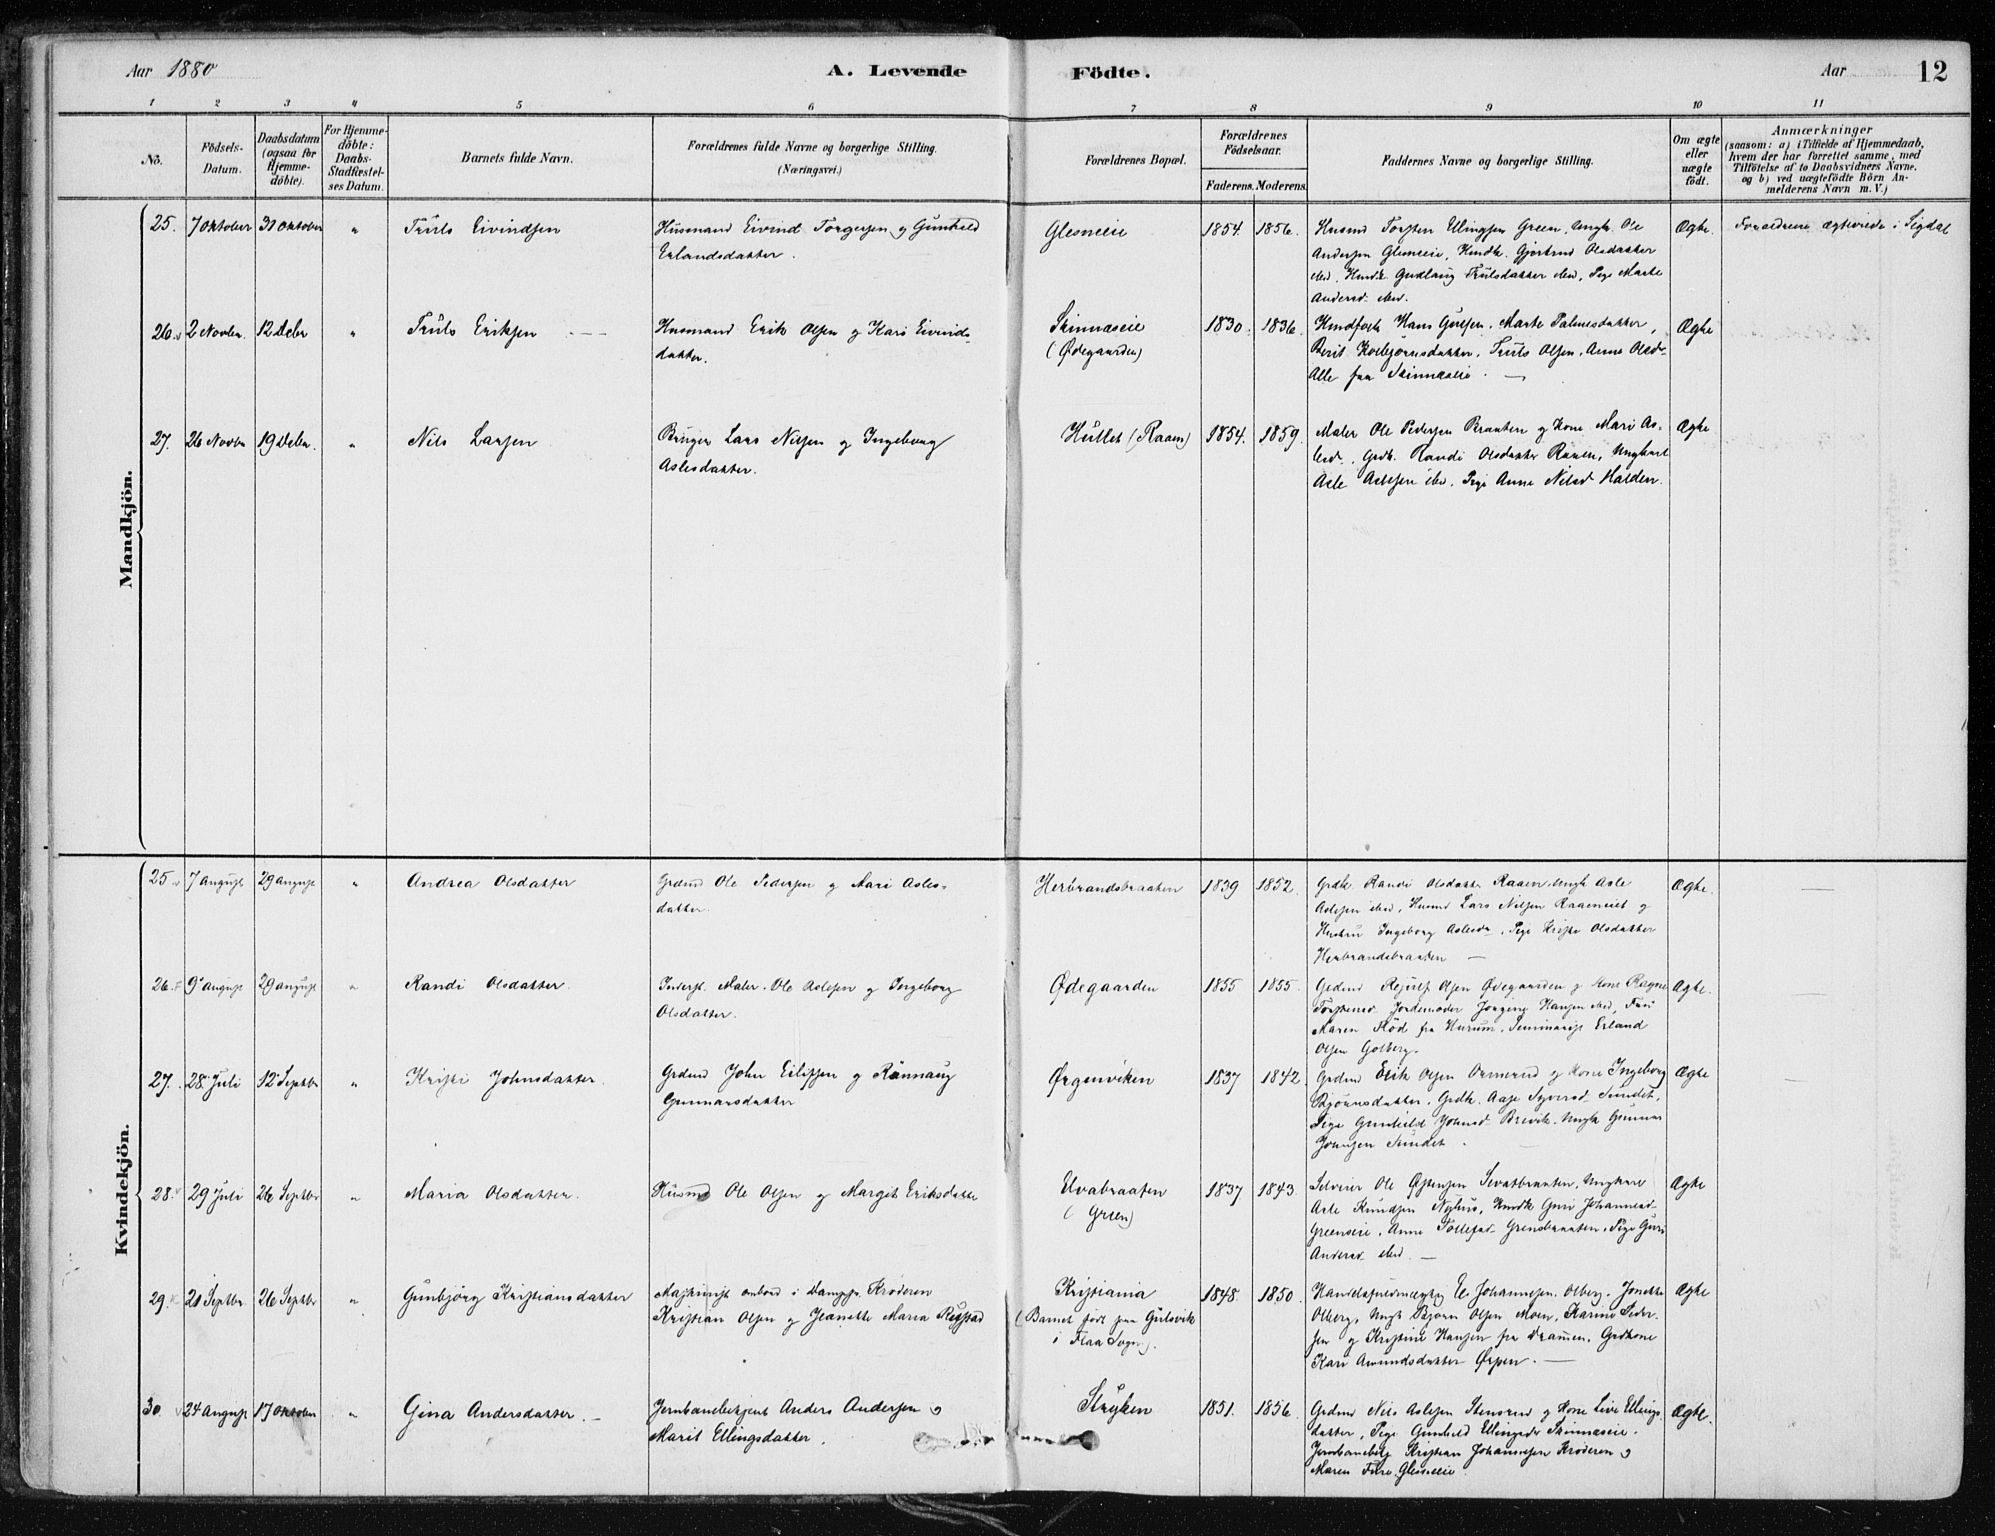 Aar 1880
A. Levende Födte.
Aar
12
1 2 3 4 5 6 7 8 9 10 11
No.
Födsels-Datum.
Daabsdatum (ogsaa for Hjemme-döbte).
For Hjemme-döbte: Daabs-Stadfæstel-ses Datum.
Barnets fulde Navn.
Forældrenes fulde Navne og borgerlige Stilling. (Næringsvei.)
Forældrenes Bopæl.
Forældrenes Födselsaar.
Faderens. Moderens.
Faddernes Navne og borgerlige Stilling.
Om ægte eller uægte födt.
Anmærkninger
(saasom: a) i Tilfælde af Hjemmedaab,
hvem der har forrettet samme, med
Tilföielse af to Daabsvidners Navne.
og b) ved uægtefödte Börn An-
melderens Navn m. V.)
Mandkjön.
25. 7 Oktober 31 Oktober " Truls Eivindsen
Husmand Eivind Torgersen og Gunhild
Erlandsdatter.
Glesneeie 1854. 1856.
Husmd Torsten Ellingsen Green, Ungk. Ole
Andersen Glesneeie, Kmdk. Gjertrud Olsdatter
ibid. Husmk. Gudlaug Trulsdatter ibid, Pige Marte
Andersd. ibid.
Ægte. Forældrene ægteviede i Sigdal
26. 2 Novbr. 12 Debr " Truls Eriksen
Husmand Erik Olsen og Kari Eivinds-
datter.
Skinnæseie
(Ødegaarden)
1830. 1836.
Kmdfolk Hans Gulsen, Marte Palmesdatter,
Berit Torbjörnsdatter. Truls Olsen, Anne Olsdr
Alle fra Skinnæseie.
Ægte
27. 26 Novbr 19 Debr. " Nils Larsen
Bruger Lars Nilsen og Ingeborg
Aslesdatter.
Hullet (Raaen) 1854. 1859.
Maler Ole Pedersen Braaten og Kone Mari As-
lesd., Grdk. Randi Olsdatter Raaen, Ungkarl
Asle Aslesen ibd. Pige Anne Nilsd Halden.
Ægte
Kvindekjön.
25 7 August 29 August " Andrea Olsdatter
Grdmd Ole Pedersen og Mari Asles-
datter.
Herbrandsbraaten 1839 1852.
Grdk. Randi Olsdatter Raaen, Ungk Asle
Aslesen ibd, Husmd Lars Nilsen Raaeneiet og
Hustru Ingeborg Aslesdr, Pige Kristi Olsdatter
Herbrandsbraaten
Ægte. —
26. 9 August 29 August " Randi Olsdatter
Inderst. Maler. Ole Aslesen og Ingeborg
Olsdatter.
Ødegaarden 1855 1855.
Grdmd Olsen Ødegaarden og Kone Ragne
Torstensd. Jordemoder Jorgine Hansen ibid, Fru
Maren Röd fra Hurum, Seminarist Erland
Olsen Golberg.
Ægte. —
27. 28 Juli 12 Septbr " Kristi Johnsdatter.
Grdmd John Eilifsen og Rönnaug
Gunnarsdatter
Ørgenviken 1837 1842.
Grdmd Erik Olsen Ormerud og Kone Ingeborg
Bjönnsdatter, Grdk. Aase Syversd. Sundet,
Pige Gunhild Johnsd. Brevik. Ungk Gunnar
Johnsen Sundet.
Ægte —
28. 29 Juli 26 Septbr " Maria Olsdatter.
Husmd Ole Olsen og Margit Eriksdatte
Elvabraaten
(Green)
1837 1843.
Selveier Ole Sevatbraaten, Ungkarl
Asle Knudsen Nyhus, Kmdk Guri Johannesd.
Greeneie, Anne Tollefsd. Grensbraaten. Pige Guri
Andersd. ibid. —
Ægte
29. 21 Septbr 26 Septbr " Gunbjörg Kristiansdatter
Maskinist ombord i Dampsk. Kröderen
Kristian Olsen og Jeanette Maria Rustad
Kristiania
(Barnet födt paa Gulsvik
i Flaa Sogn).
1848. 1850.
Handelsfuldmægtig E. Johannesen Olberg. Jonette
Olberg, Ungk Björn Olsen Moen, Karine Peder-
sen og Kristine Hansen fra Drammen. Grdkone
Kari Amundsdatter Ørpen. —
Ægte
30. 24 August 17 Oktober " Gina Andersdatter. —
Jernbanebetjent Anders Andersen og
Marit Ellingsdatter.
Stryken 1851. 1856.
Grdmd Nils Aslesen Stensrud og Kone Live Ellings-
datter, Pige Gunhild Ellingsdr Skinnæseie.
Jernbanebetj Kristian Johannesen Kröderen og
Maren Glesneeie
Ægte.